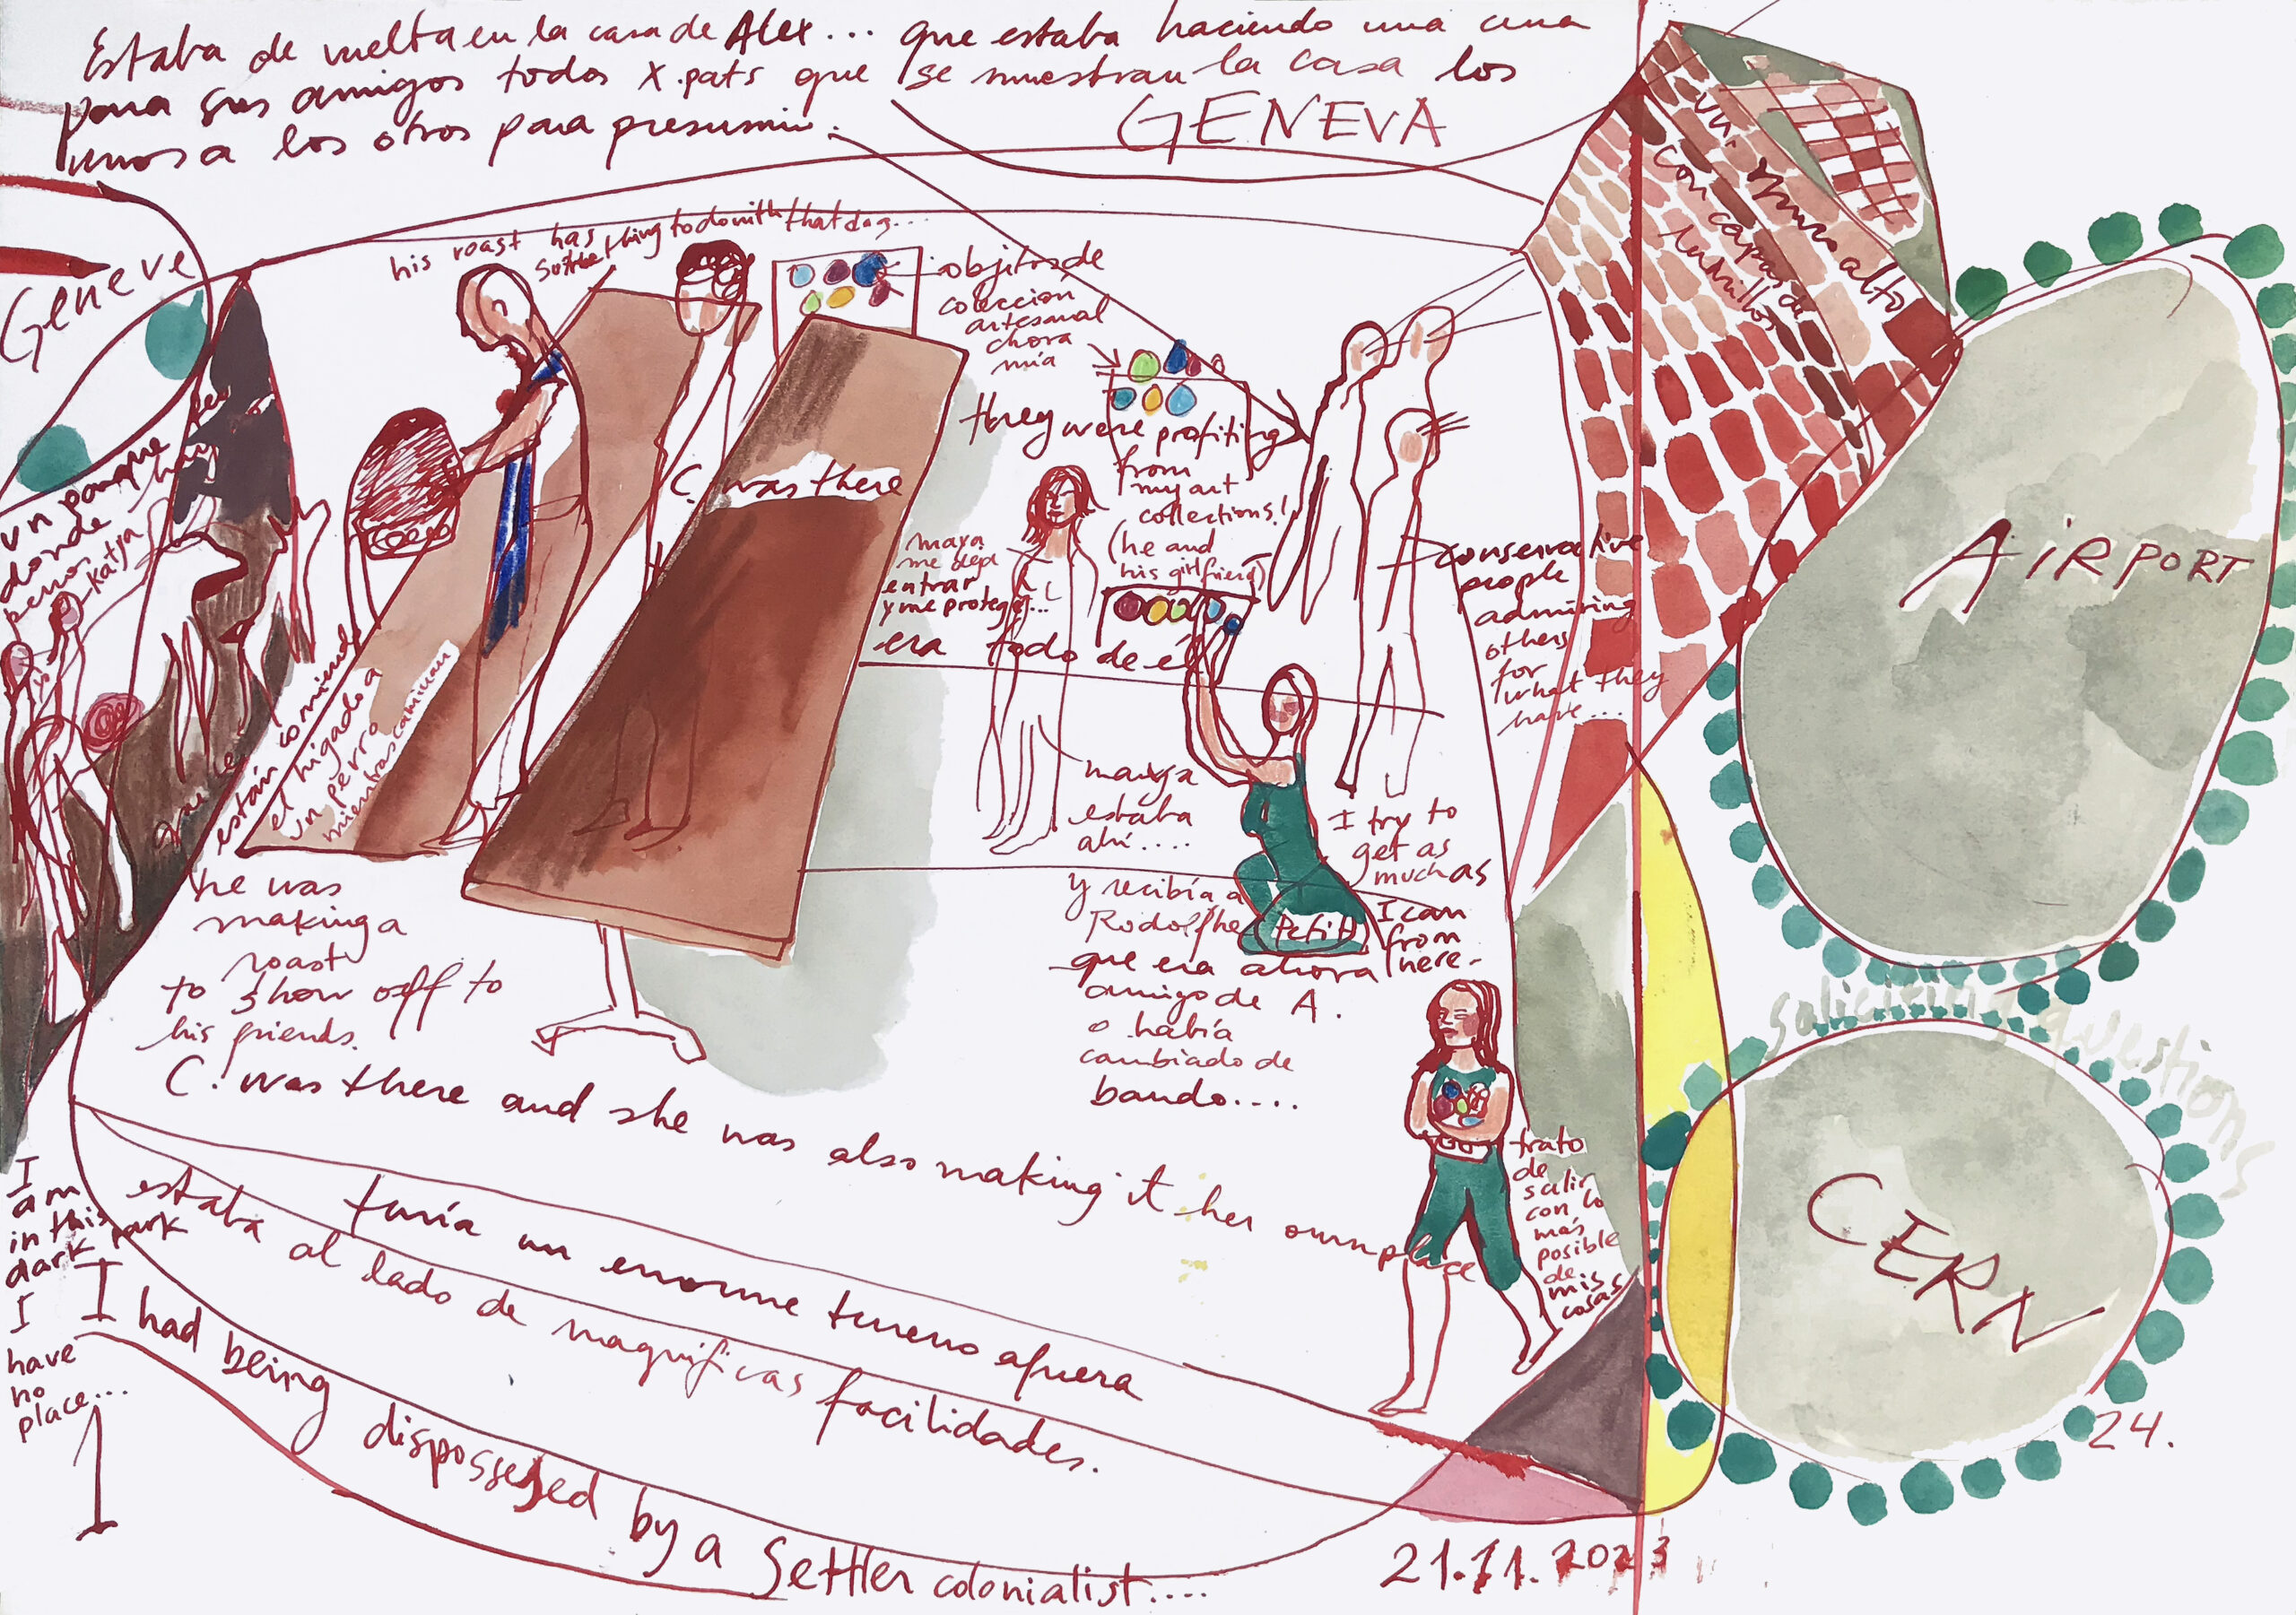 Estaba de vuelta en la casa de Alex... que estaba haciendo una cena
para sus amigos todos X.pats que se muestran la casa los
unos a los otros para presumir.
GENEVA
Geneve
his roast has
something to do with that dog....
objetos de
coleccion
artesanal
ahora
mía
they were profiting
from
my art
collections!
(he and
his girlfriend)
C. was there
maya
me deja
entrar
y me protege...
era todo de él
un parque
donde hay
perros
Katja
que le
están comiendo
el hígado a
un perro
mientras caminan
conservative
people
admiring
others
for
what they
have...
vn muro alto
con capas de
ladrillos
AIRPORT
maya
estaba
ahí....
y recibía a
Rodolfhe
que era ahora
amigo de A.
o había
cambiado de
bando....
Petit
I try to
get as
much as
I can
from
here.
he was
making a
roast
to show off to
his friends.
C. was there and she was also making it her own place
trato
de
salir
con lo
más
posible
de
mis
cosas
soliciting questions
CERN
24.
I
am
in this
dark park
I
have
no
place...
tenía un enorme terreno afuera
estaba al lado de magnificas facilidades.
I had being dispossesed by a Settler colonialist....
21.11.2023